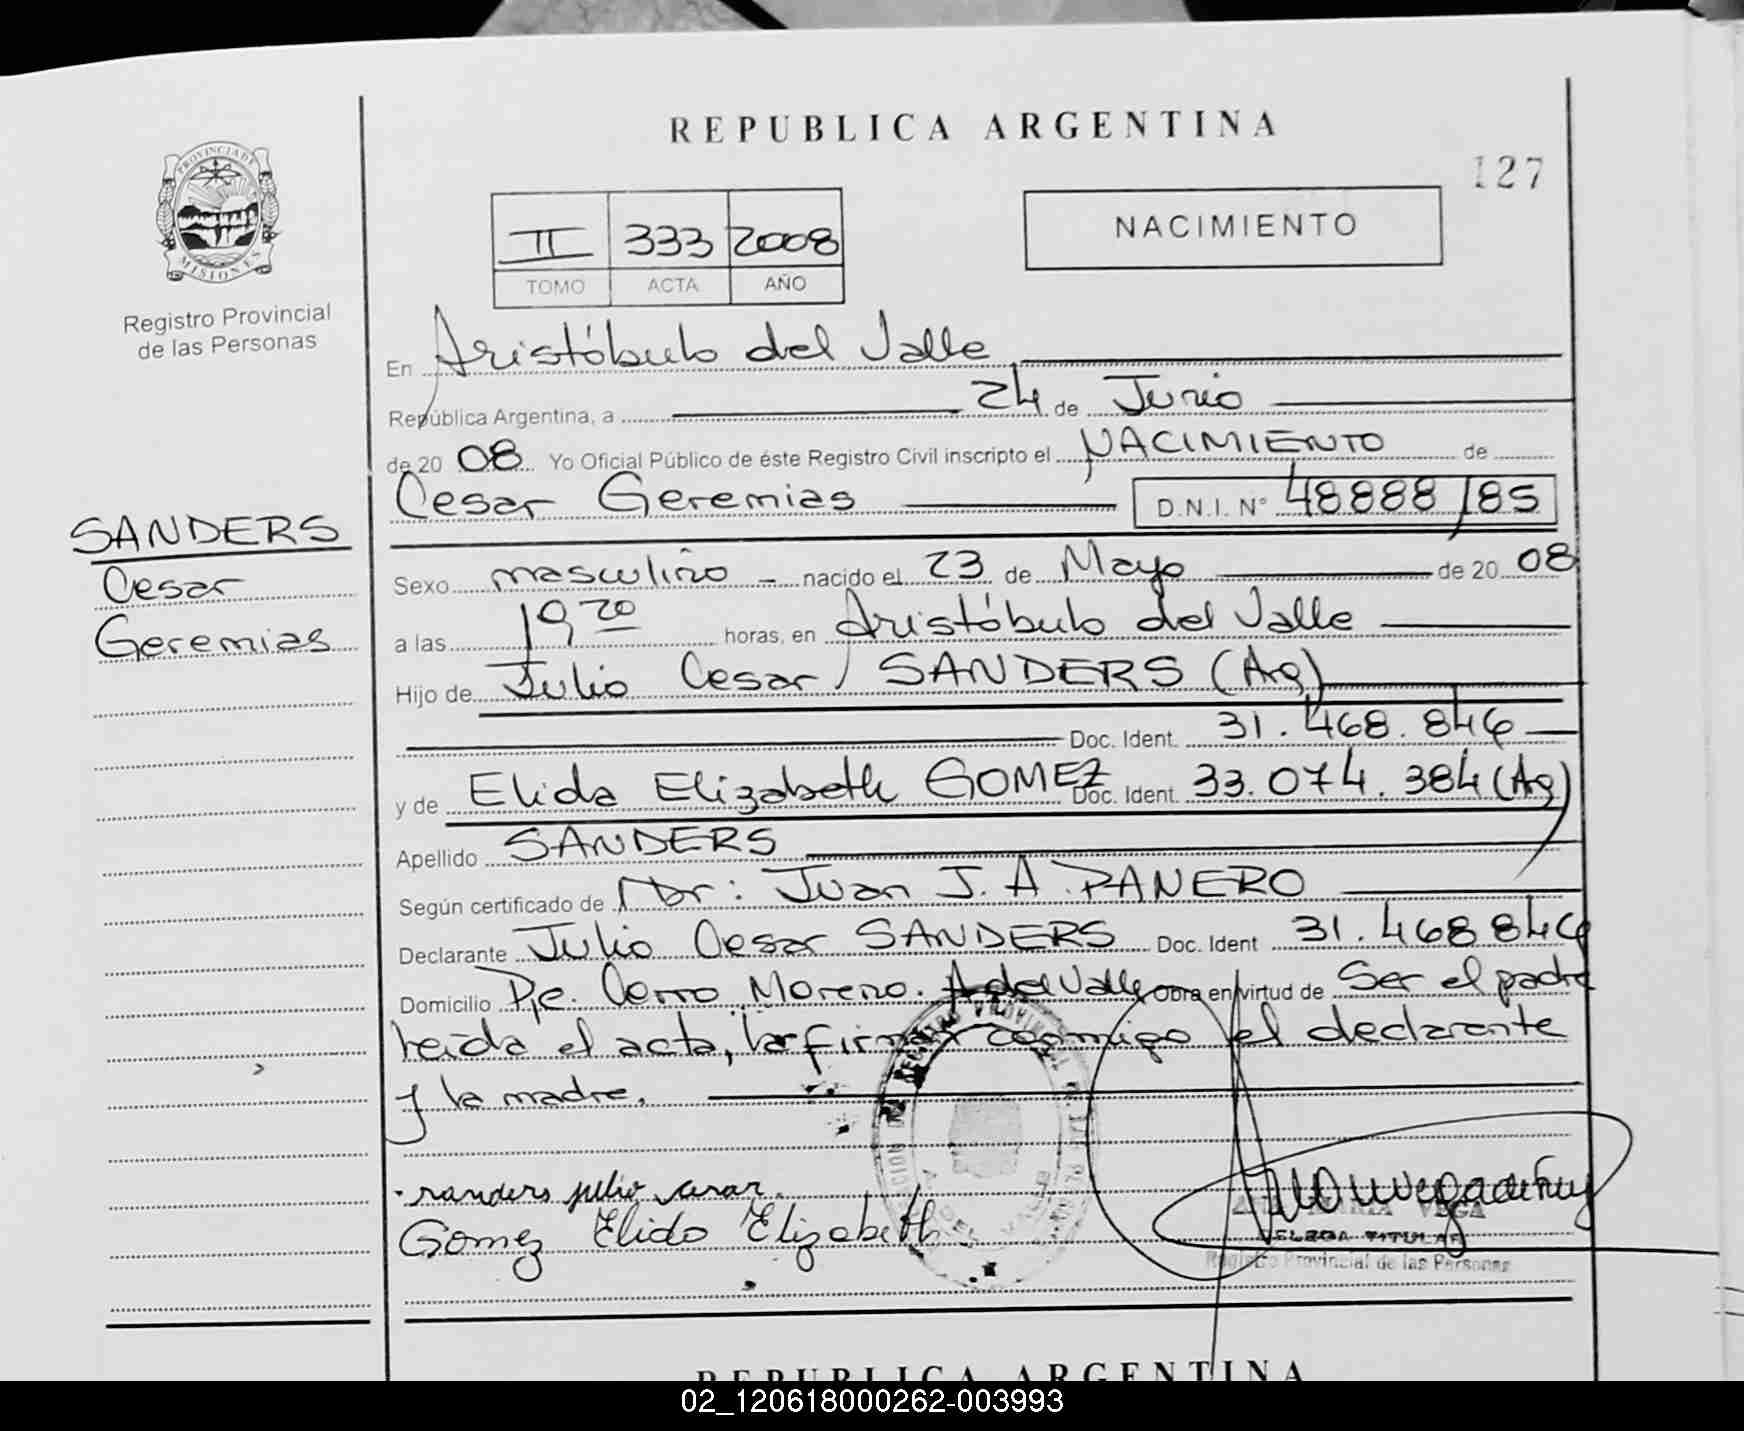 REPUBLICA ARGENTINA
127
PROVINCIA DE
MISIONES
Registro Provincial
de las Personas
II 333 2008
TOMO ACTA AÑO
NACIMIENTO
En Aristóbulo del Valle
República Argentina, a 24 de Junio
de 20 08 Yo Oficial Público de éste Registro Civil inscripto el NACIMIENTO de
Cesar Geremias D.N.I. Nº 48888185
SANDERS
Cesar
Geremias
Sexo masculino - nacido el 23 de Mayo de 20 08
a las 19,20 horas, en Aristóbulo del Valle
Hijo de Julio Cesar SANDERS (Ag)
Doc. Ident. 31.468.846
y de Elida Elizabeth GOMEZ Doc. Ident. 33.074.384 (Ag)
Apellido SANDERS
Según certificado de Dr: Juan J. A. PANERO
Declarante Julio Cesar SANDERS Doc. Ident 31.468846
Domicilio Pje. Cerro Moreno. A del Valle Obra en virtud de Ser el padre
heida el acta, la firman conmigo el declarante
y la madre.
sanders julio cesar.
Gomez Elida Elizabeth
VEGA
TITULAR
Registro Provincial de las Personas
REPUBLICA ARGENTINA
02_120618000262-003993